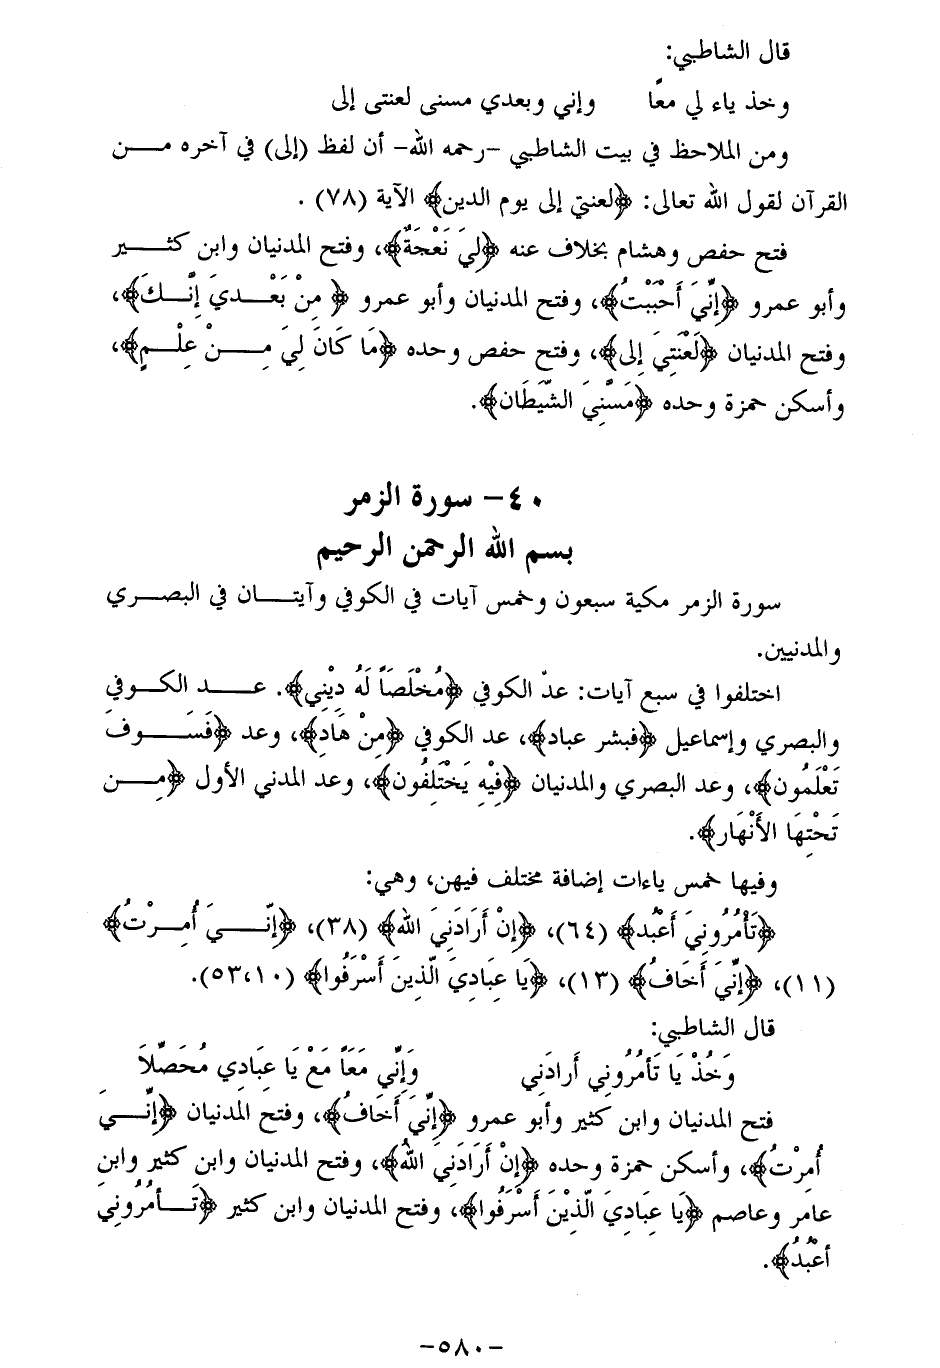 قال الشاطبي:
وخذ ياء لي معًا وإني وبعدي مسنى لعنتى إلى
ومن الملاحظ في بيت الشاطبي -رحمه الله- أن لفظ (إلى) في آخره مـــن
القرآن لقول الله تعالى: ﴿لعنتي إلى يوم الدين﴾ الآية (٧٨) .
فتح حفص وهشام بخلاف عنه ﴿لِيَ نَعْجَةٌ﴾، وفتح المدنيان وابن كثـــــير
وأبو عمرو ﴿إِنِّيَ أَحْبَبْتُ﴾، وفتح المدنيان وأبو عمرو ﴿مِنْ بَعْـــدِيَ إِنَّـــكَ﴾،
وفتح المدنيان ﴿لَعْنَتِيَ إِلى﴾، وفتح حفص وحده ﴿مَا كَانَ لِيَ مِـــنْ عِلْـــمٍ﴾،
وأسكن حمزة وحده ﴿مَسَّنِيَ الشَّيَطَان﴾.
٤٠- سورة الزمر
بسم الله الرحمن الرحيم
سورة الزمر مكية سبعون وخمس آيات في الكوفي وآيتـــان في البصـــري
والمدنيين.
اختلفوا في سبع آيات: عدّ الكوفي ﴿مُخْلَصَاً لَهُ دِيْنِي﴾. عـــد الكـــوفي
والبصري وإسماعيل ﴿فبشر عباد﴾، عد الكوفي ﴿مِنْ هَادِ﴾، وعد ﴿فَسَـــوفَ
تَعْلَمُون﴾، وعد البصري والمدنيان ﴿فِيْهِ يَخْتَلِفُون﴾، وعد المدني الأول ﴿مِـــن
تَحْتِهَا الأَنْهَار﴾.
وفيها خمس ياءات إضافة مختلف فيهن، وهي:
﴿تَأْمُرُونِيَ أَعْبُد﴾ (٦٤)، ﴿إِنْ أَرَادَنِيَ الله﴾ (٣٨)، ﴿إِنّـــيَ أُمِـــرْتُ﴾
(١١)، ﴿إِنِّيَ أَخَافُ﴾ (١٣)، ﴿يَا عِبَادِيَ الَّذِينَ أَسْرَفُوا﴾ (٥٣،١٠).
قال الشاطبي:
وَخُذْ يَا تَأمُرُوني أَرادَنِي وَإِنِّي مَعَاً مَعْ يَا عِبَادِي مُحَصِّلاَ
فتح المدنيان وابن كثير وأبو عمرو ﴿إِنِّيَ أَخَافُ﴾، وفتح المدنيان ﴿إِنّـــيَ
أُمِرْتُ﴾، وأسكن حمزة وحده ﴿إِنْ أَرَادَنِيَ اللهُ﴾، وفتح المدنيان وابن كثير وابن
عامر وعاصم ﴿يَا عِبَادِيَ الَّذِيْنَ أَسْرَفُوا﴾، وفتح المدنيان وابن كثير ﴿تَـــأمُرُونِيَ
أعْبُدُ﴾.
-٥٨٠-